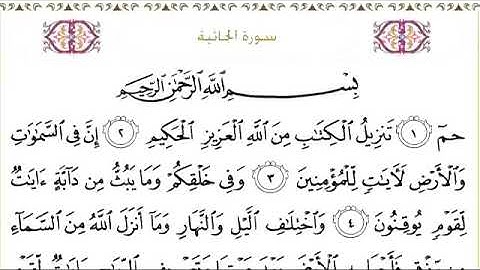 سورة الجاثية
بِسْمِ ٱللَّهِ ٱلرَّحْمَٰنِ ٱلرَّحِيمِ
حمٓ ١ تَنزِيلُ ٱلْكِتَٰبِ مِنَ ٱللَّهِ ٱلْعَزِيزِ ٱلْحَكِيمِ ٢ إِنَّ فِى ٱلسَّمَٰوَٰتِ
وَٱلْأَرْضِ لَءَايَٰتٍ لِّلْمُؤْمِنِينَ ٣ وَفِى خَلْقِكُمْ وَمَا يَبُثُّ مِن دَآبَّةٍ ءَايَٰتٌ
لِّقَوْمٍ يُوقِنُونَ ٤ وَٱخْتِلَٰفِ ٱلَّيْلِ وَٱلنَّهَارِ وَمَآ أَنزَلَ ٱللَّهُ مِنَ ٱلسَّمَآءِ